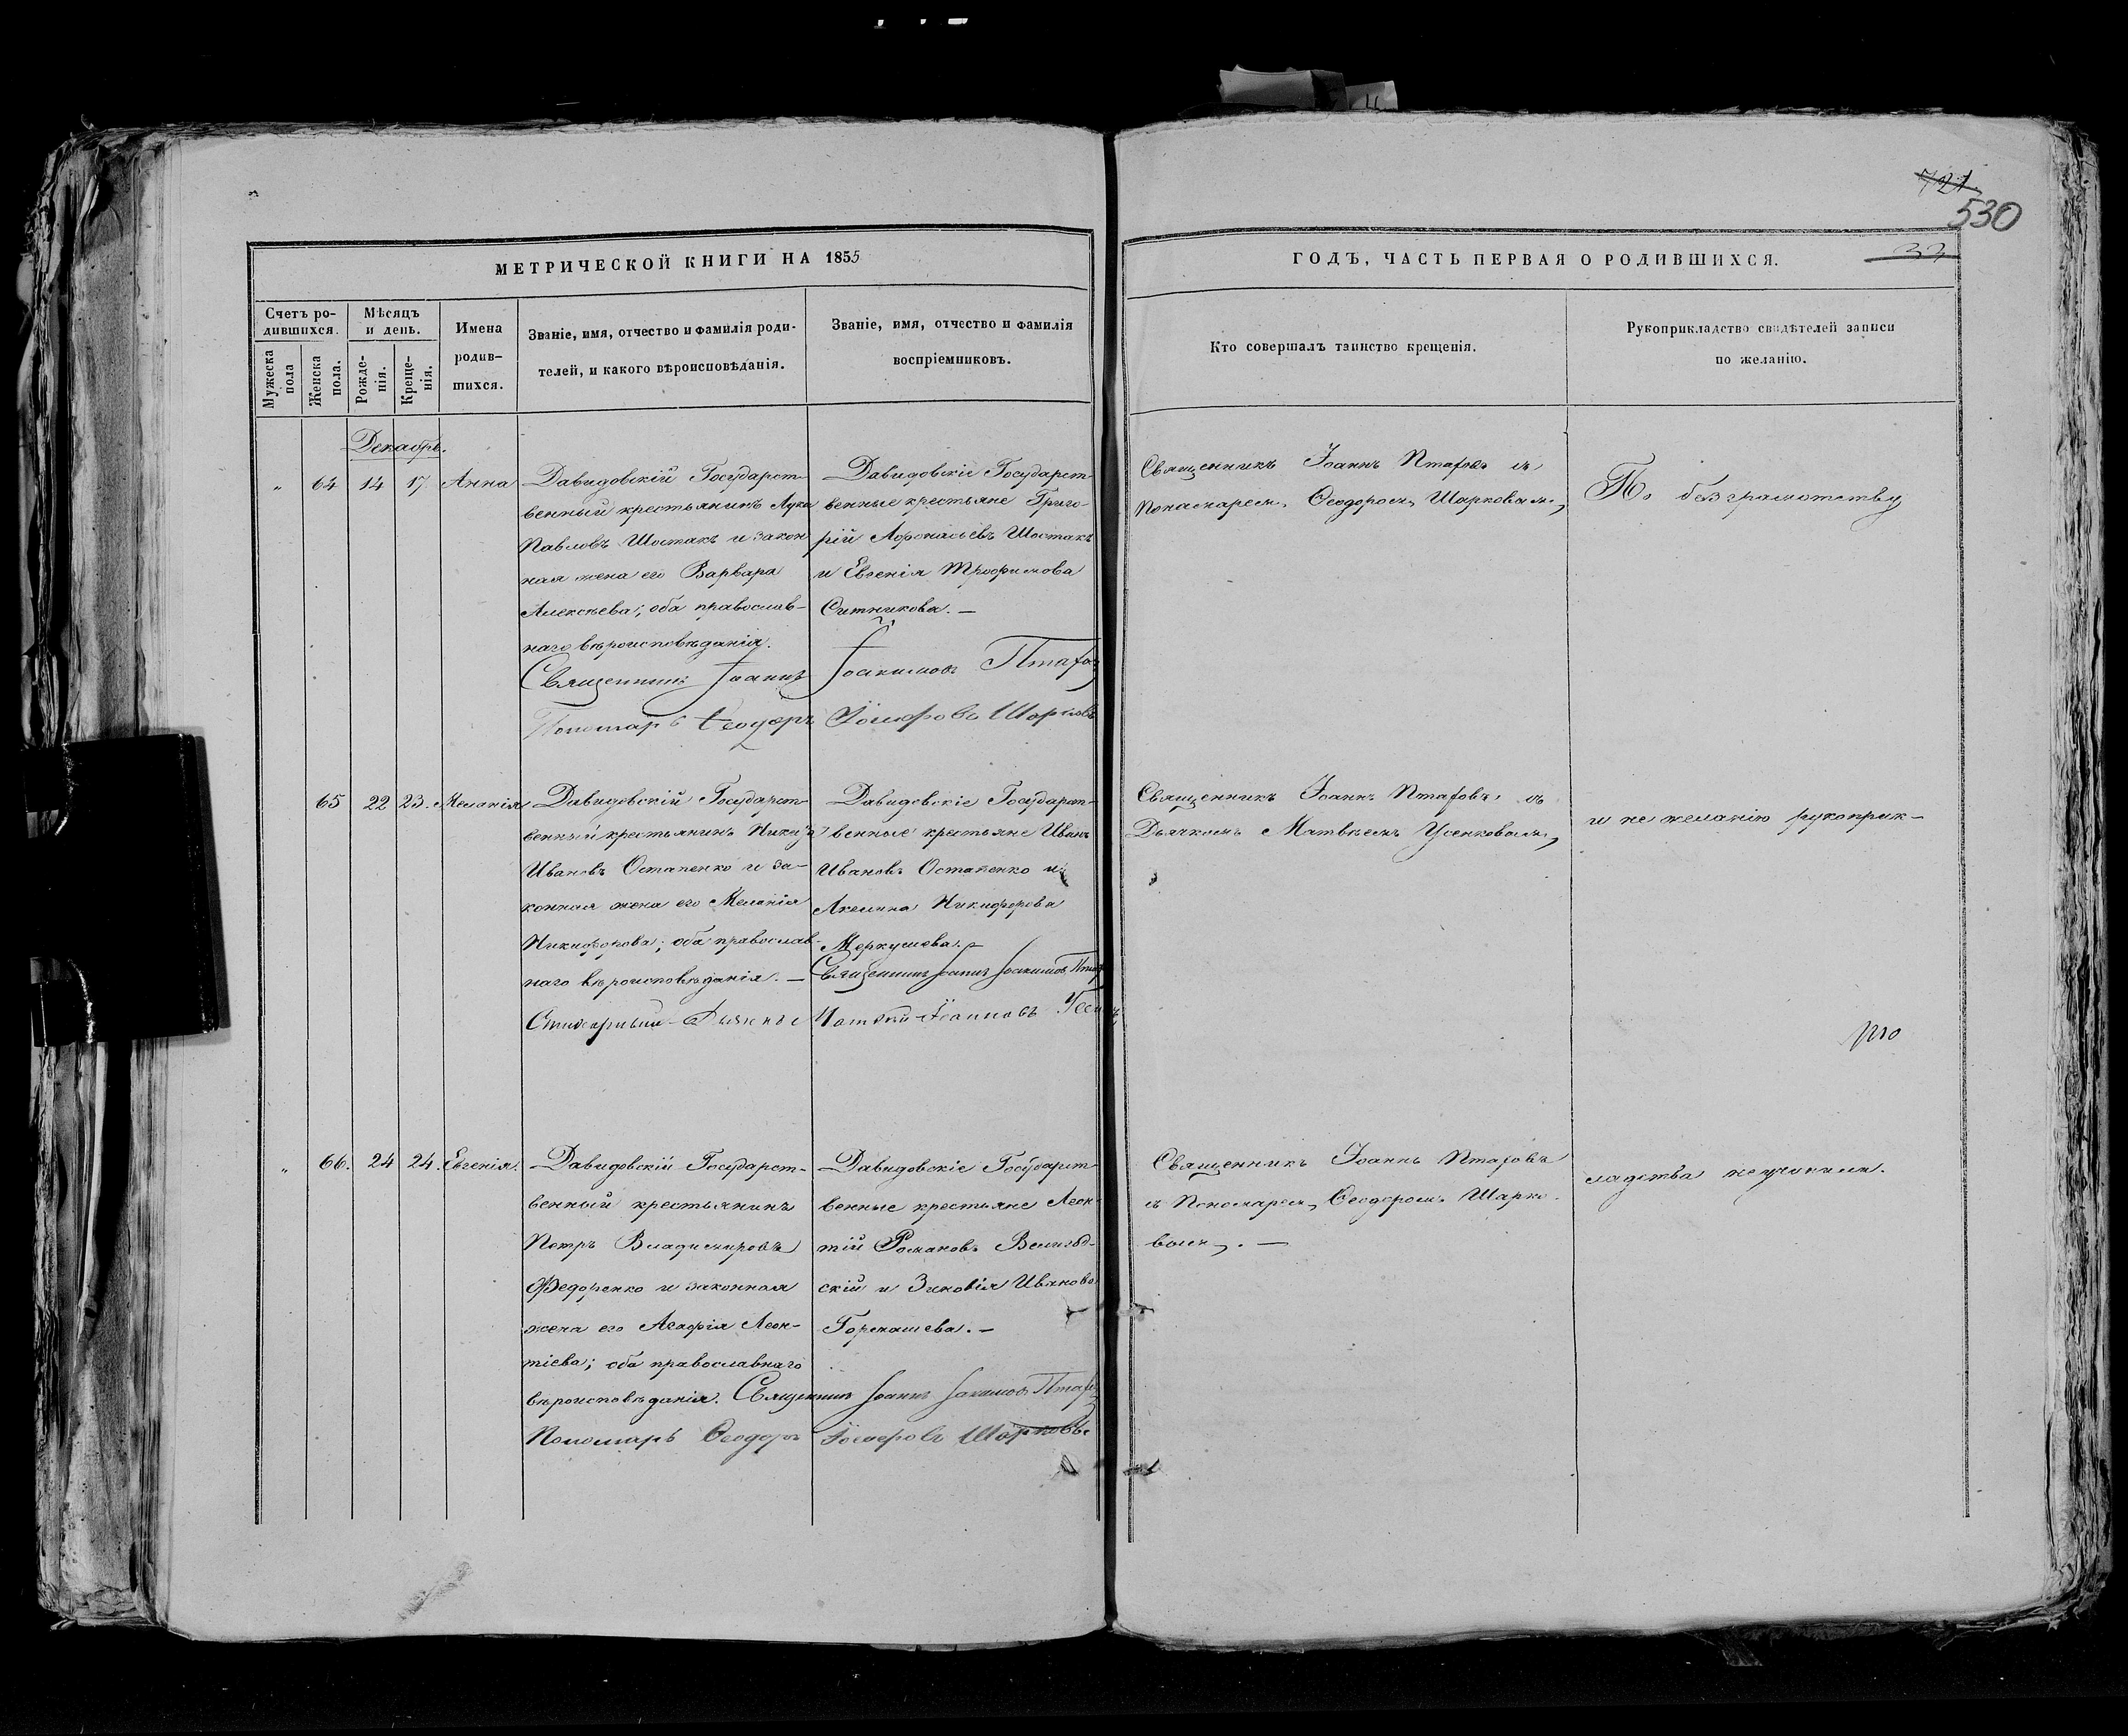 721
530
33
МЕТРИЧЕСКОЙ КНИГИ НА 1855
ГОДЪ, ЧАСТЬ ПЕРВАЯ О РОДИВШИХСЯ.
Счетъ ро-
дившихся.
Мужеска
пола
Женска
пола.
Мѣсяцъ
и день.
Рожде-
нія.
Креще-
нія.
Имена
родив-
шихся.
Званіе, имя, отчество и фамилія роди-
телей, и какого вѣроисповѣданія.
Званіе, имя, отчество и фамилія
воспріемниковъ.
Кто совершалъ таинство крещенія.
Рукоприкладство свидѣтелей записи
по желанію.
Декабрь.
„ 64 14 17 Анна
Давидовскій Государст-
венный крестьянинъ Лука
Павловъ Шостакъ и закон
ная жена его Варвара
Алексѣева; оба православ-
наго вѣроисповѣданія.
Давидовскіе Государст-
венные крестьяне Григо-
рій Афонасьевъ Шостакъ
и Евгенія Трофимова
Ситникова. —
Священникъ Іоаннъ Іоакимовъ Птафовъ
Пономарь Ѳеодоръ Шарковъ
Священникъ Іоаннъ Птафовъ съ
Пономаремъ Ѳеодоромъ Шарковымъ,
По безграмотству
65 22 23. Меланія
Давидовскій Государст-
венный крестьянинъ
Ивановъ Остапенко и за-
конная жена его Меланія
Никифорова; оба православ-
наго вѣроисповѣданія. —
Давидовскіе Государст-
венные крестьяне Иванъ
Ивановъ Остапенко и
Акелина Никифорова
Меркушева. —
Священникъ Іоаннъ Іоакимовъ
Священникъ Іоаннъ Птафовъ съ
Дьячкомъ Матвѣемъ Усенковымъ,
и не желанію рукоприк-
„ 66. 24 24. Евгенія.
Давидовскій Государст-
венный крестьянинъ
Петръ Владимировъ
Федоренко и законная
жена его Агафія Леон-
тіева; оба православнаго
вѣроисповѣданія.
Давидовскіе Государст-
венные крестьяне Леон-
тій Романовъ
скій и Зиновія Иванова
Горкашева. —
Священникъ Іоаннъ Іоакимовъ Птафовъ
Пономарь Ѳеодоръ Шарковъ
Священникъ Іоаннъ Птафовъ
съ Пономаремъ Ѳеодоромъ Шарко-
вымъ. —
ладства не учинили.